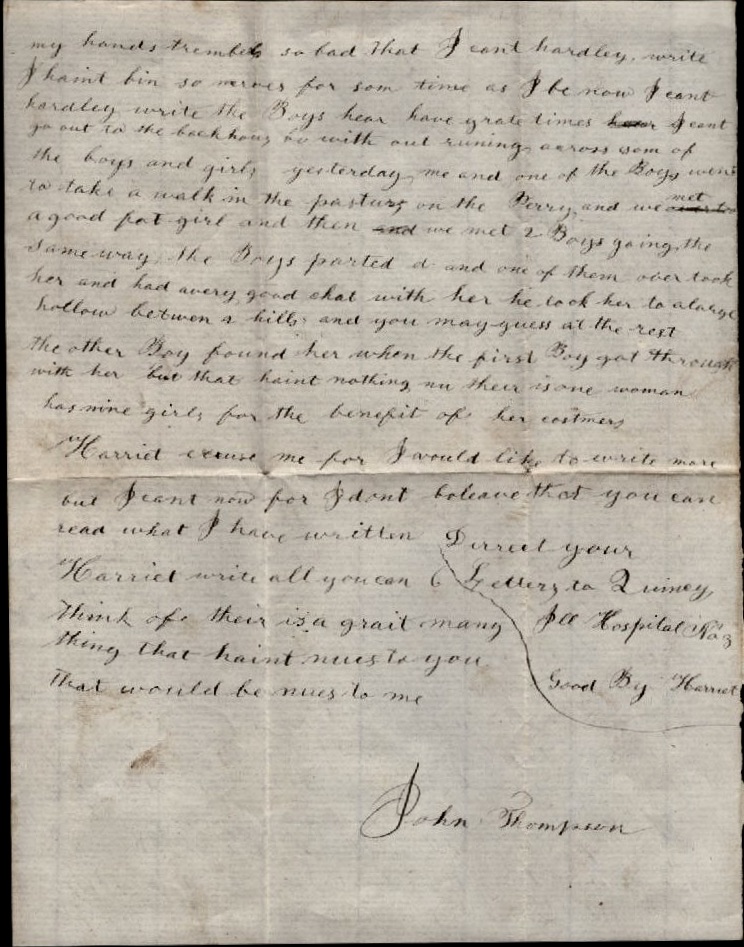 my hands trembels so bad that I cant hardley write
I haint bin so nerves for som time as I be now I cant
hardley write the Boys hear have grate times hear I cant
go out to the backhous with out runing across som of
the boys and girls yesterday me and one of the Boys went
to take a walk in the pasture on the Perry and we met
a good pot girl and then and we met 2 Boys going the
same way the Boys parted and one of them over took
her and had avery good chat with her he took her to alarge
hollow betwen 2 hills and you may guess at the rest
the other Boy found her when the first Boy got through
with her but that haint nothing nu their is one woman
has nine girls for the benefit of her costmers
Harriet excuse me for I would like to write more
but I cant now for I dont beleave that you can
read what I have written
Harriet write all you can
think of their is a grait many
thing that haint nues to you
that would be nues to me
Direct your
Letters to Quincy
Ill Hospital No 3
Good By Harriet
John Thompson